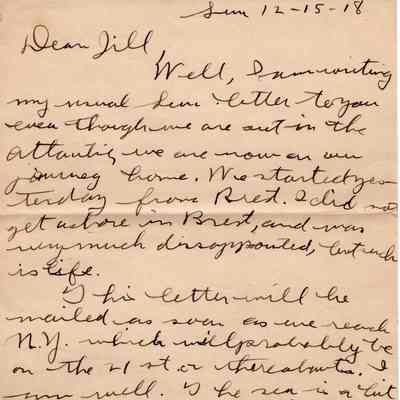 Sun 12-15-18
Dear Jill,
Well, I am writing
my usual Sun. letter to you
even though we are out in the
Atlantic, we are now on our
journey home. We started yes-
terday from Brest. I did not
get ashore in Brest, and was
very much disappointed, but such
is life.
This letter will be
mailed as soon as we reach
N.Y. which will probably be
on the 21st. or thereabouts. I
am well. The sea is a bit